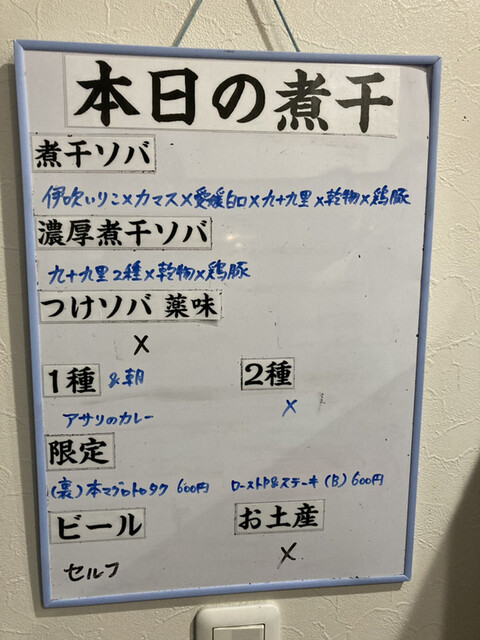 本日の煮干
煮干ソバ
伊吹いりこ×カマス×愛媛白口×九十九里×乾物×鶏豚
濃厚煮干ソバ
九十九里2種×乾物×鶏豚
つけソバ 薬味
×
1種 &朝 2種
アサリのカレー ×
限定
(裏)本マグロトロタク 600円 ローストP&ステーキ(B)600円
ビール お土産
セルフ ×